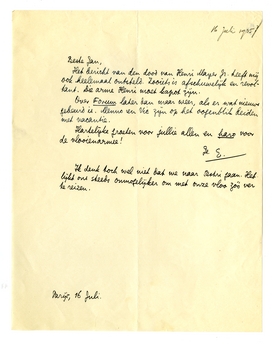 16 Juli 1935
Beste Jan,
Het bericht van den dood van Henri Mayer Jr. heeft mij
ook heelemaal ontsteld. Zooiets is afschuwelijk en revol-
tant. Die arme Henri moet kapot zijn.
Over Forum later dan maar weer, als er wat nieuws
gebeurd is. Menno en Vic zijn op het oogenblik beiden
met vacantie.
Hartelijke groeten voor jullie allen en
de vlooienarmee!
Je E.
Ik denk toch wel niet dat we naar Sestri gaan. Het
lijkt ons steeds onmogelijker om met onze vloo zoo ver
te reizen.
Parijs, 16 Juli.